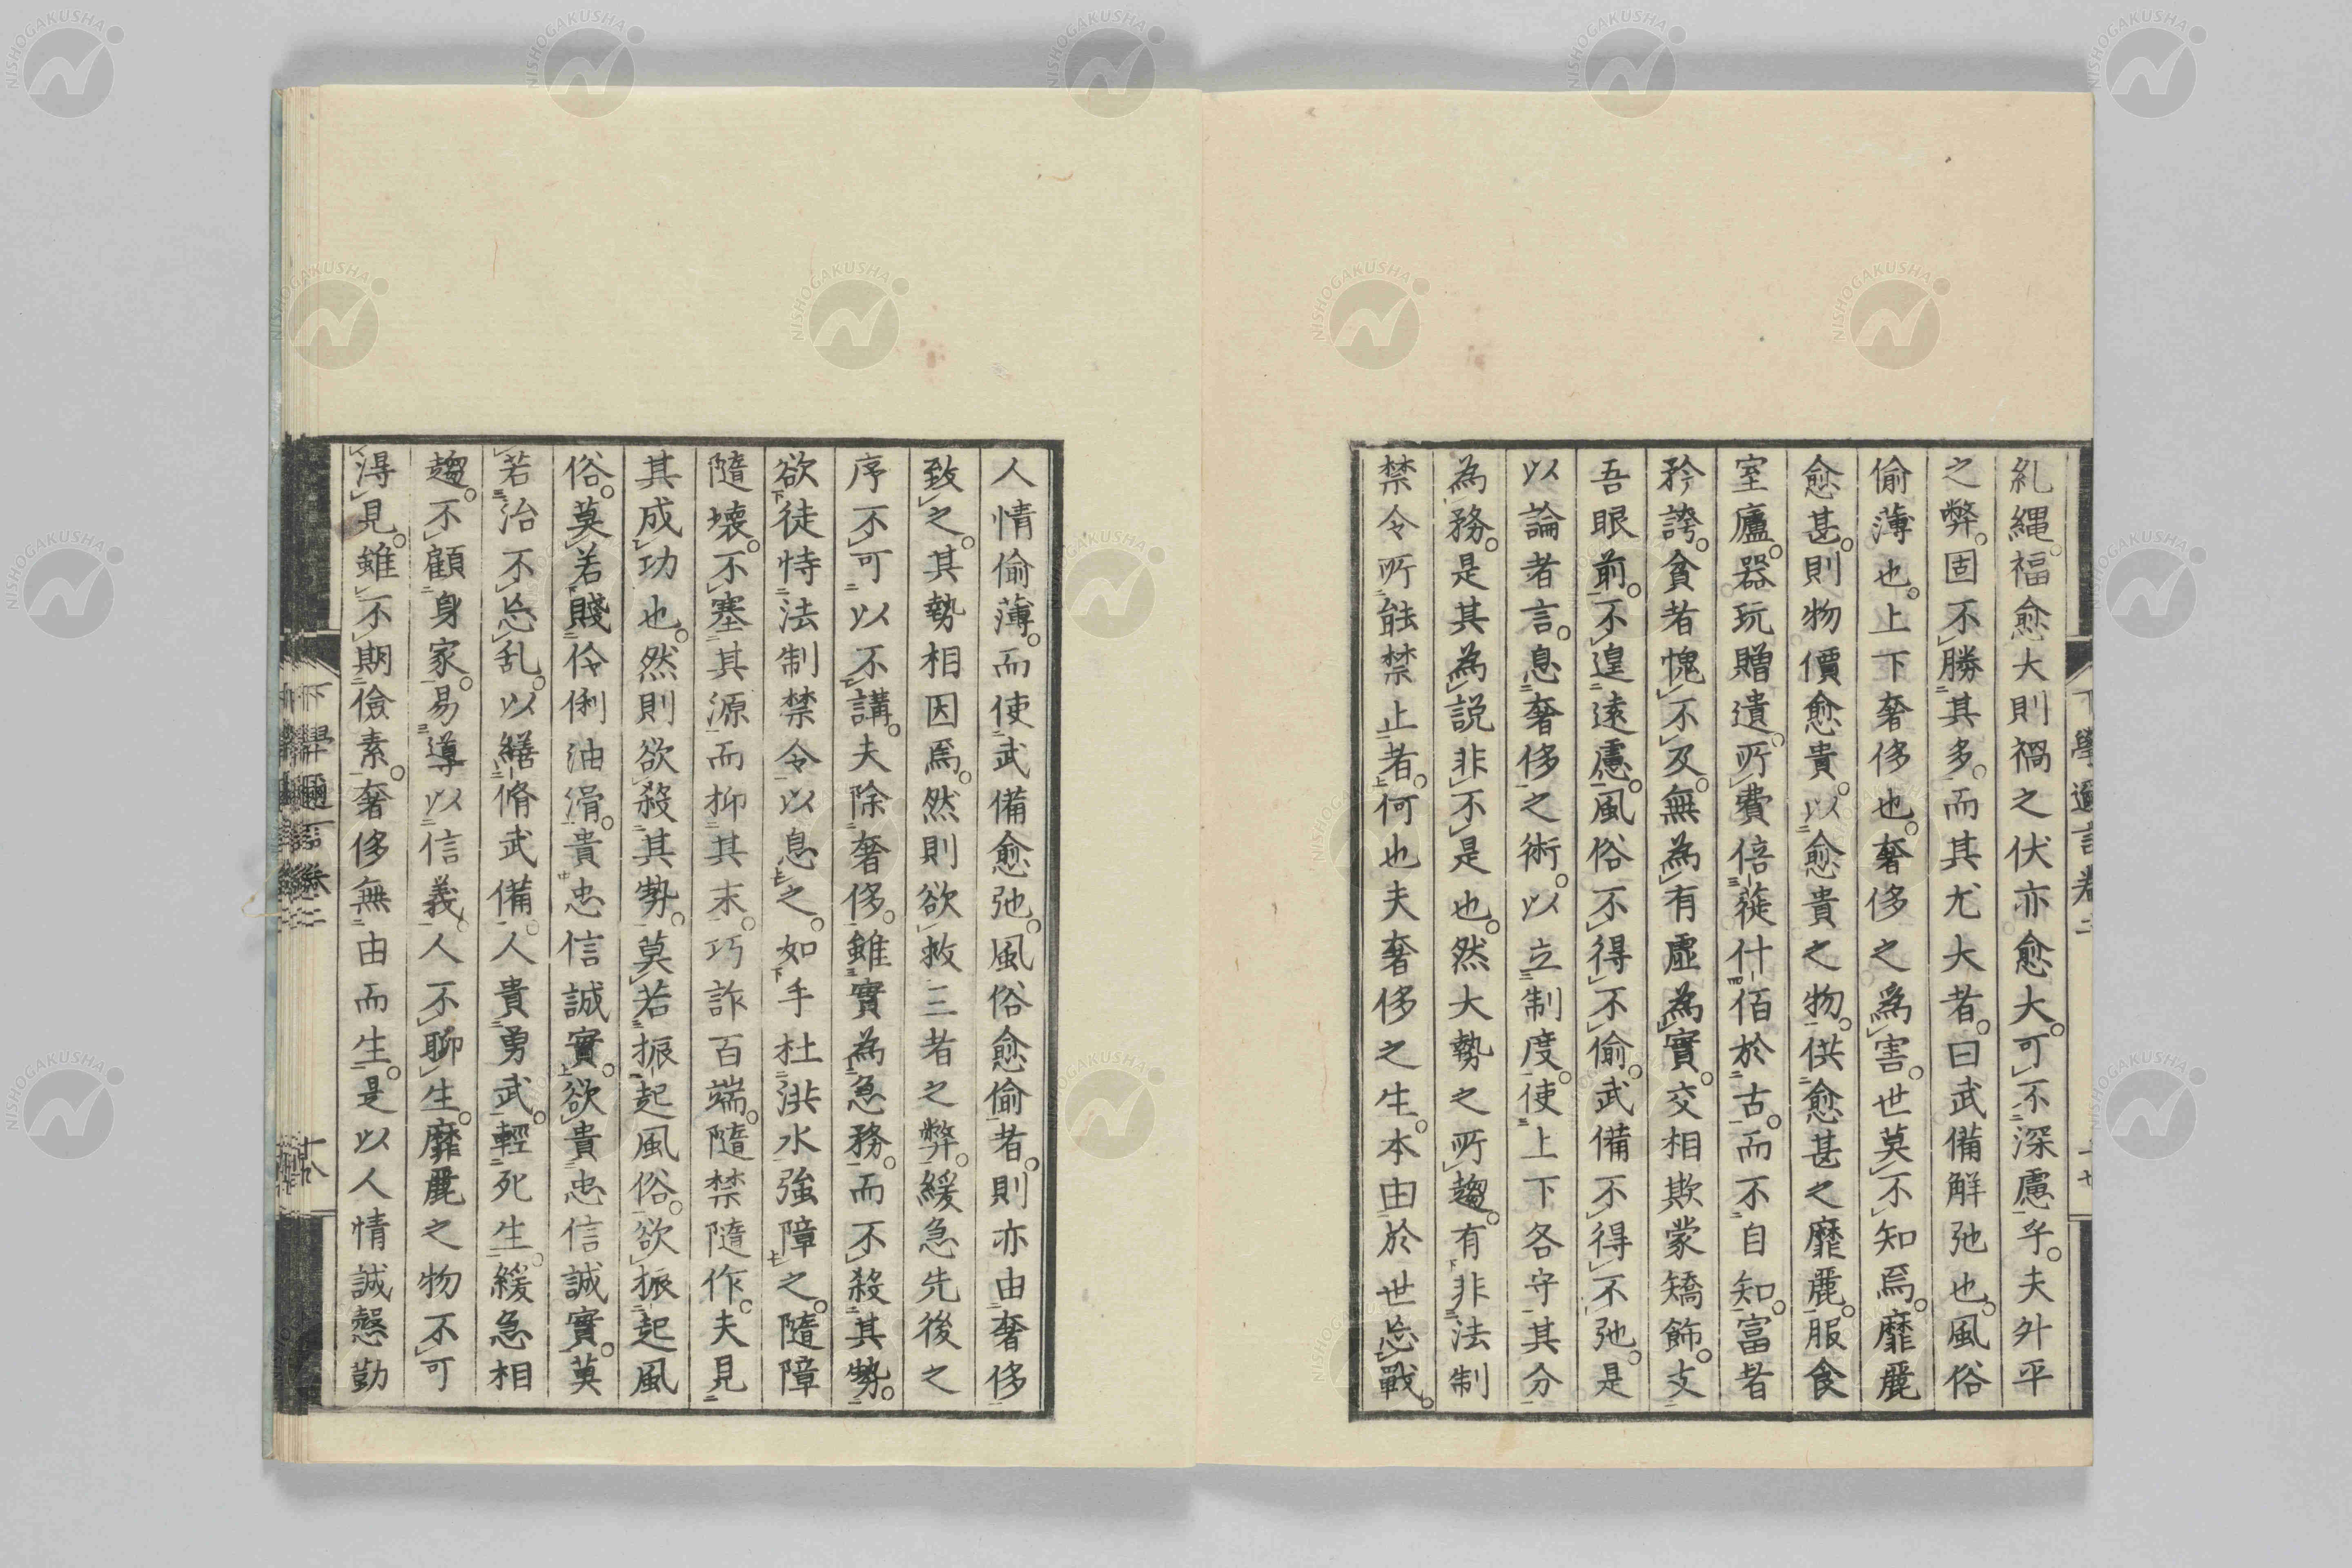 糺縄。福愈大則禍之伏亦愈大。可不深慮乎。夫外平
之弊。固不勝其多。而其尤大者。曰武備解弛也。風俗
偷薄也。上下奢侈也。奢侈之為害。世莫不知焉。靡麗
愈甚。則物價愈貴。以愈貴之物。供愈甚之靡麗。服食
室廬。器玩贈遺。所費倍蓰什佰於古。而不自知。富者
矜誇。貧者愧不及。無為有虛為實。交相欺蒙矯飾。支
吾眼前。不遑遠慮。風俗不得不偷。武備不得不弛。是
以論者言。息奢侈之術。以立制度。使上下各守其分
為務。是其為説非不是也。然大勢之所趨。有非法制
禁令所能禁止者。何也夫奢侈之生。本由於世忘戰。
下學邇言卷二 十七
人情偷薄。而使武備愈弛。風俗愈偷者。則亦由奢侈
致之。其勢相因焉。然則欲救三者之弊。緩急先後之
序不可以不講。夫除奢侈。雖實為急務。而不殺其勢。
欲徒恃法制禁令以息之。如手杜洪水強障之。隨障
隨壞。不塞其源而抑其末。巧詐百端。隨禁隨作。夫見
其成功也。然則欲殺其勢。莫若振起風俗。欲振起風
俗。莫若賤伶俐油滑。貴忠信誠實。欲貴忠信誠實。莫
若治不忘乱。以繕脩武備。人貴勇武。輕死生。緩急相
趨。不顧身家。易導以信義。人不聊生。靡麗之物不可
得見。雖不期儉素。奢侈無由而生。是以人情誠愨勤
下學邇言卷二 十八
NISHOGAKUSHA